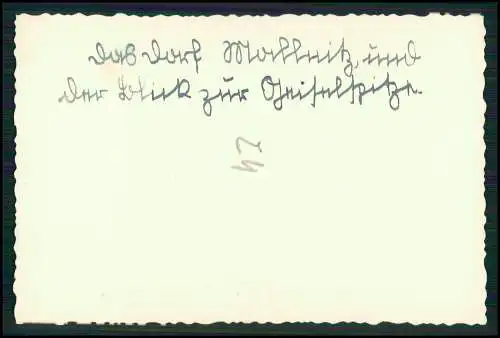 das Dorf Mallnitz, und
der Blick zur Geiselspitze.
42